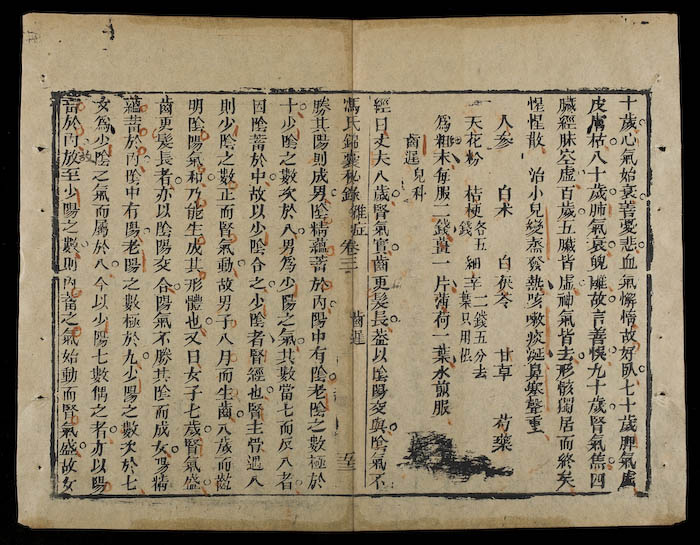 十歲心氣始衰善憂悲血氣懈惰故好臥七十歲脾氣虛
皮膚枯八十歲肺氣衰魄離故言善悞九十歲腎氣焦四
臟經脉空虛百歲五臟皆虛神氣皆去形骸獨居而終矣
惺惺散 治小兒變蒸發熱咳嗽痰涎鼻塞聲重
人參 白朮 白茯苓 甘草 芍藥
天花粉 桔梗各五錢 細辛二錢五分去葉只用根
為粗末每服二錢薑一片薄荷一葉水煎服
齒遲兒科
經曰丈夫八歲腎氣實齒更髮長蓋以陰陽交與陰氣不
馮氏錦囊秘錄雜症 卷三 齒遲 五
勝其陽則成男陰精蘊蓄於內陽中有陰老陰之數極於
十少陰之數次於八男為少陽之氣其數當七而反八者
因陰蓄於中故以少陰合之少陰者腎經也腎主骨遇八
則少陰之數正而腎氣動故男子八月而生齒八歲而齔
明陰陽氣和乃能生成其形體也又曰女子七歲腎氣盛
齒更髮長者亦以陰陽交合陽氣不勝其陰而成女陽精
蘊蓄於內陰中有陽老陽之數極於九少陽之數次於七
女為少陰之氣而屬於八今以少陽七數偶之者亦以陽
蓄於內故至少陽之數則內蓄之氣始動而腎氣盛故女
故